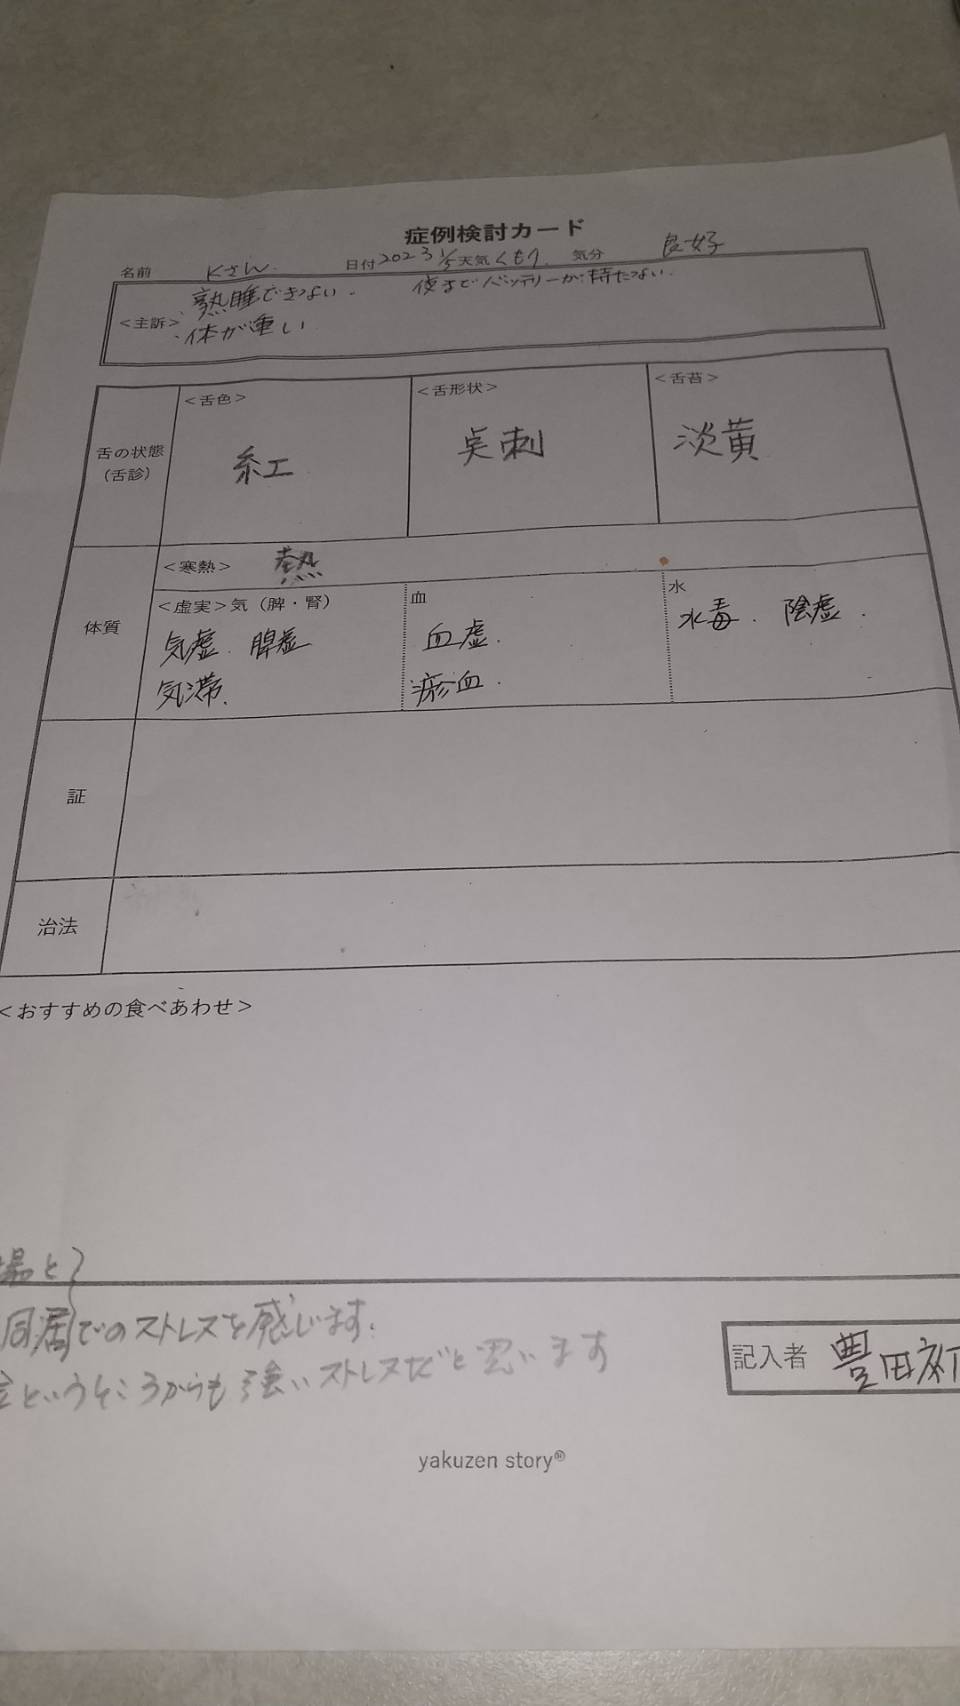 症例検討カード
名前 Kさん 日付 2023 1/5 天気 くもり 気分 良好
<主訴> ・熟睡できない. 夜までバッテリーが持たない.
・体が重い
舌の状態(舌診)
<舌色> 紅
<舌形状> 点刺
<舌苔> 淡黄
体質
<寒熱> 熱
<虚実>気(脾・腎)
気虚 脾虚
気滞.
血
血虚.
瘀血.
水
水毒. 陰虚.
証
治法
<おすすめの食べあわせ>
場と
同居でのストレスを感じます.
というところからも強いストレスだと思います
記入者 豊田
yakuzen story®